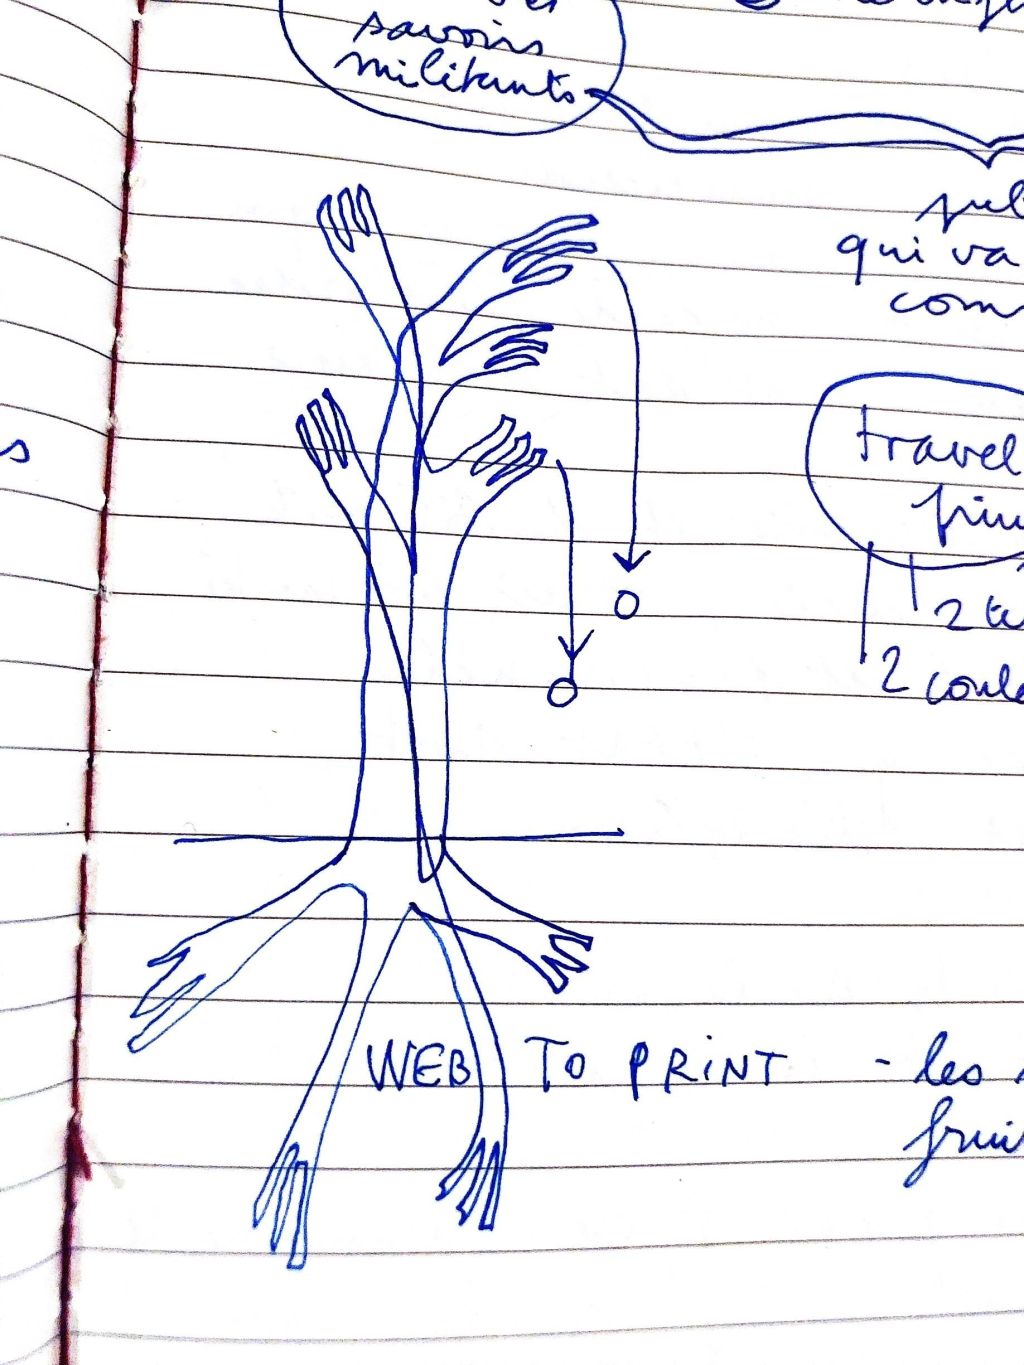 savoirs
militants
qui va
com
travel
2 te
2 coule
s
WEB TO PRINT - les
fruit